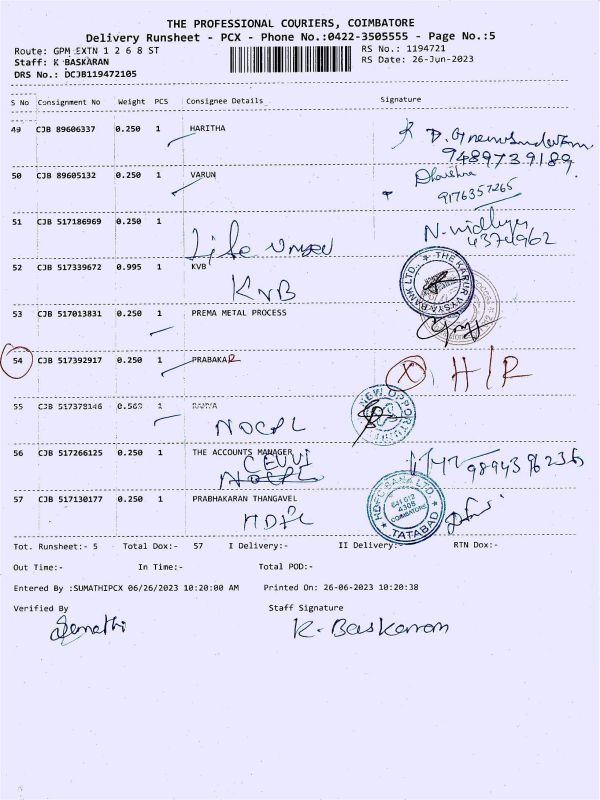 THE PROFESSIONAL COURIERS, COIMBATORE
Delivery Runsheet - PCX - Phone No.:0422-3505555 - Page No.:5
Route: GPM EXTN 1 2 6 8 ST RS No.: 1194721
Staff: K BASKARAN RS Date: 26-Jun-2023
DRS No.: DCJB119472105
S No Consignment No Weight PCS Consignee Details Signature
49 CJB 89606337 0.250 1 HARITHA
9489739189
50 CJB 89605132 0.250 1 VARUN
9176357265
51 CJB 517186969 0.250 1 N. vidhya
Life 4374962
52 CJB 517339672 0.995 1 KVB
KVB
THE KARUR VYSYA BANK LTD.
53 CJB 517013831 0.250 1 PREMA METAL PROCESS
54 CJB 517392917 0.250 1 PRABAKAR X H/R
55 CJB 517378146 0.560 1 RAMYA
NOCPL
NEW OPPORTUNITY
56 CJB 517266125 0.250 1 THE ACCOUNTS MANAGER
CEUVI 9894396236
NOCPL
57 CJB 517130177 0.250 1 PRABHAKARAN THANGAVEL
HDFC
HDFC BANK LTD. 641 012 4308 COIMBATORE TATABAD
Tot. Runsheet:- 5 Total Dox:- 57 I Delivery:- II Delivery:- RTN Dox:-
Out Time:- In Time:- Total POD:-
Entered By :SUMATHIPCX 06/26/2023 10:20:00 AM Printed On: 26-06-2023 10:20:38
Verified By Staff Signature
Sumathi K. Baskaran